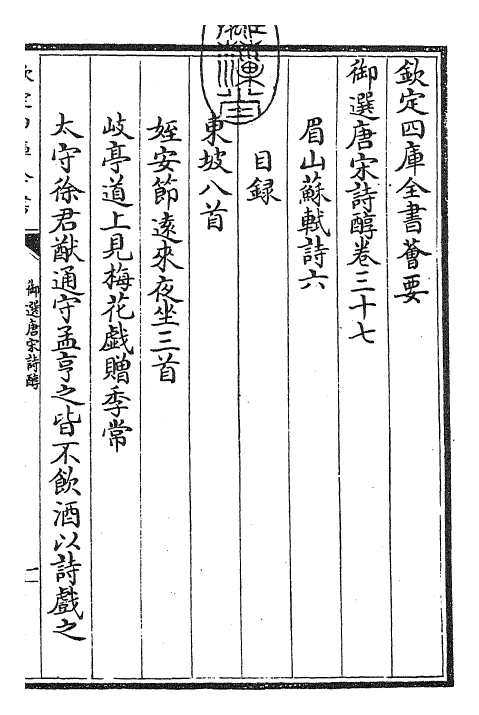 欽定四庫全書薈要
御選唐宋詩醇卷三十七
眉山蘇軾詩六
目録
東坡八首
姪安節遠來夜坐三首
岐亭道上見梅花戲贈季常
太守徐君猷通守孟亨之皆不飲酒以詩戲之
御選唐宋詩醇